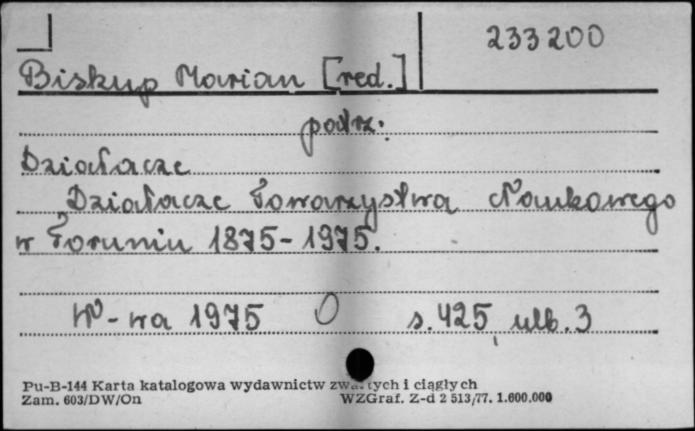 233200
Biskup Marian [red.]
podrz:
Działacze
Działacze Towarzystwa Naukowego
w Toruniu 1875-1975.
W-wa 1975 O s. 425, ulb. 3
Pu-B-144 Karta katalogowa wydawnictw zwartych i ciągłych
Zam. 603/DW/On WZGraf. Z-d 2 513/77. 1.600.000